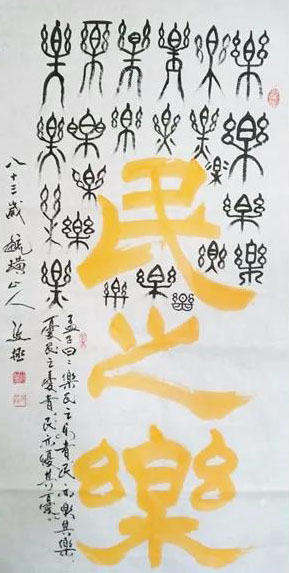 樂 樂 樂 樂 樂 樂
樂 樂 樂 樂 樂 樂
樂 樂 樂 樂
樂 樂 樂
樂 樂 樂 樂
民之樂
孟子曰：樂民之樂者民亦樂其樂
憂民之憂者民亦憂其憂
八十三歲 山人